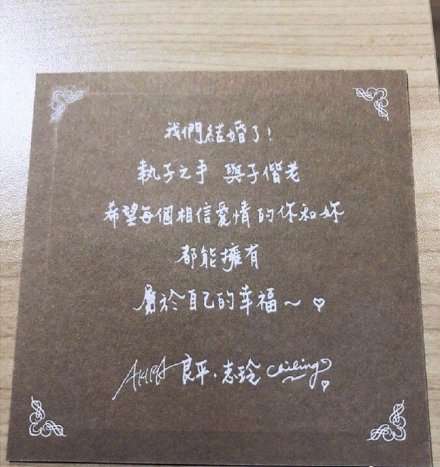 我們結婚了！
執子之手 與子偕老
希望每個相信愛情的你和妳
都能擁有
屬於自己的幸福～♡
AKIRA 良平．志玲 Chiling♡